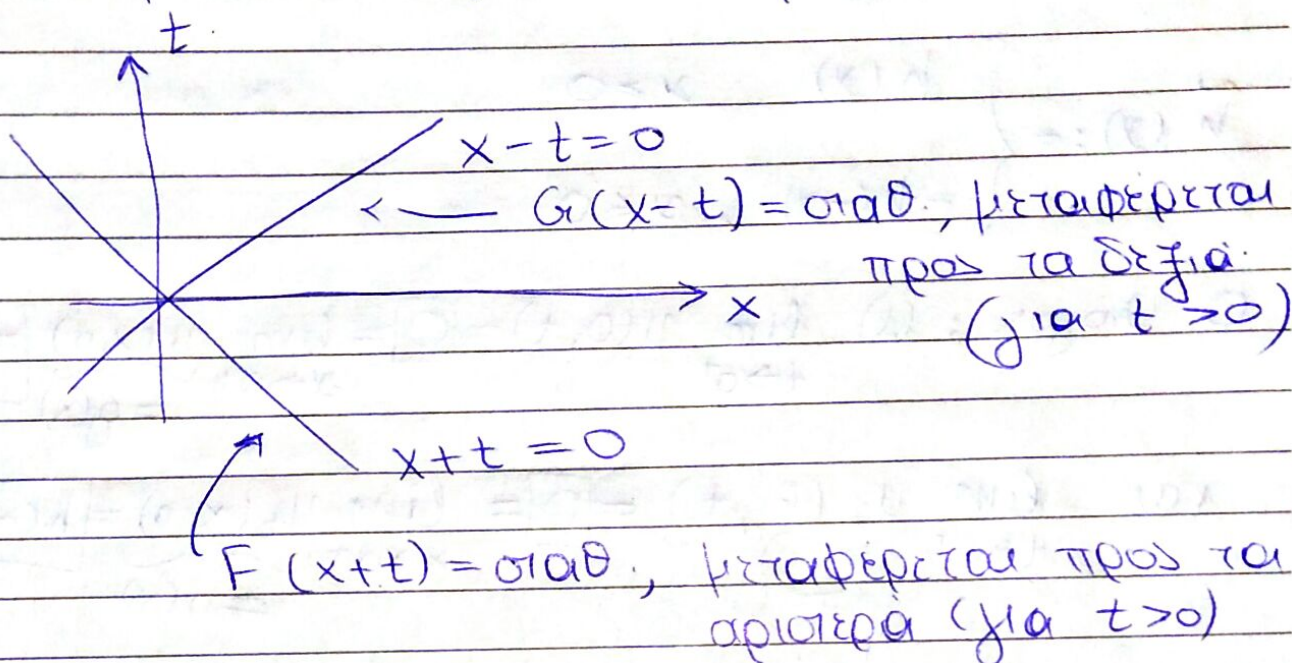 t
x-t=0
G(x-t) = σταθ., μεταφέρεται
προς τα δεξιά.
x
(για t >0)
x+t = 0
F (x+t) = σταθ., μεταφέρεται προς τα
αριστερά (για t>0)